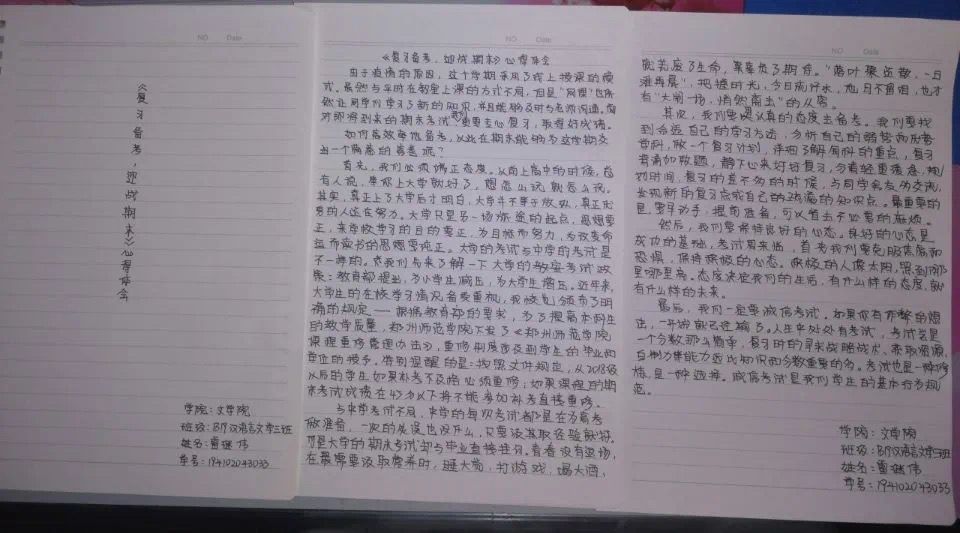 NO Date
《复习备考，迎战期末》心得体会
学院：文学院
班级：B19汉语言文学三班
姓名：曹继伟
学号：194102043033
NO Date
《复习备考，迎战期末》心得体会
由于疫情的原因，这个学期采用了线上授课的模
式。虽然与平时在教室上课的方式不同，但是“网课”也依
然让同学们学习了新的知识，并且能够及时与老师沟通。面
对即将到来的期末考试，更要专心复习，取得好成绩。
如何高效率地备考，从此在期末能够为这学期交
出一个满意的答卷呢？
首先，我们必须端正态度。从前上高中的时候，总
有人说，等你上大学就好了，想怎么玩就怎么玩。
其实，真正上了大学后才明白，大学并不等于放纵，真正优
秀的人还在努力。大学只是另一场旅途的起点，思想要
正，来学校学习的目的要正，为目标而努力，为改变命
运而读书的思想要纯正。大学的考试与中学的考试是
不一样的。在我们先来了解一下大学的考试政
策：教育部提出，为小学生减压，为大学生增压。近年来，
大学生的在校学习情况备受重视，我校也颁布了明
确的规定——根据教育部的要求，为了提高本科生
的教学质量，郑州师范学院下发了《郑州师范学院
课程重修管理办法》，重修制度涉及到学生的毕业和
学位的授予，特别提醒的是：按照文件规定，从2018级
以后的学生如果补考不及格必须重修；如果课程的期
末考试成绩在45分以下将不能参加补考直接重修。
与中学考试不同，中学的每次考试都是在为高考
做准备，一次的失误也没什么，只要汲取经验就好。
可是大学的期末考试却与毕业直接挂钩。青春没有返场，
在最需要汲取营养时，逛大街，打游戏，喝大酒，
NO Date
就荒废了生命，辜负了期待。“落叶聚还散，一日
难再晨”，把握时光，今日流汗水，他日不留泪，也才
有“大闹一场，悄然离去”的从容。
其次，我们要以认真的态度去备考。我们要找
到合适自己的学习方法，分析自己的弱势和优势
学科，做一个复习计划，详细了解每科的重点，复习
着请如数题，静下心来好好复习，分清轻重缓急，规
划时间，复习的差不多的时候，与同学会友们交流，
发现新的复习点或自己的疏漏的知识点。最重要的
是，要早动手，提前准备，可以省去不必要的麻烦。
然后，我们要保持良好的心态。良好的心态是
成功的基础，考试周来临，首先我们要克服焦急和
恐惧，保持积极的心态。积极的人像太阳，照到哪
里哪里亮。态度决定我们的生活，有什么样的态度，就
有什么样的未来。
最后，我们一定要诚信考试。如果你有作弊的想
法，一开始就已经输了。人生中处处有考试，考试岂是
一个分数那么简单，复习时的寻求战略战术、索取资源，
自制力等能力远比知识和分数重要的多。考试也是一种修
悟，是一种选择。诚信考试是我们学生的基本行为规
范。
学院：文学院
班级：B19汉语言文学三班
姓名：曹继伟
学号：194102043033